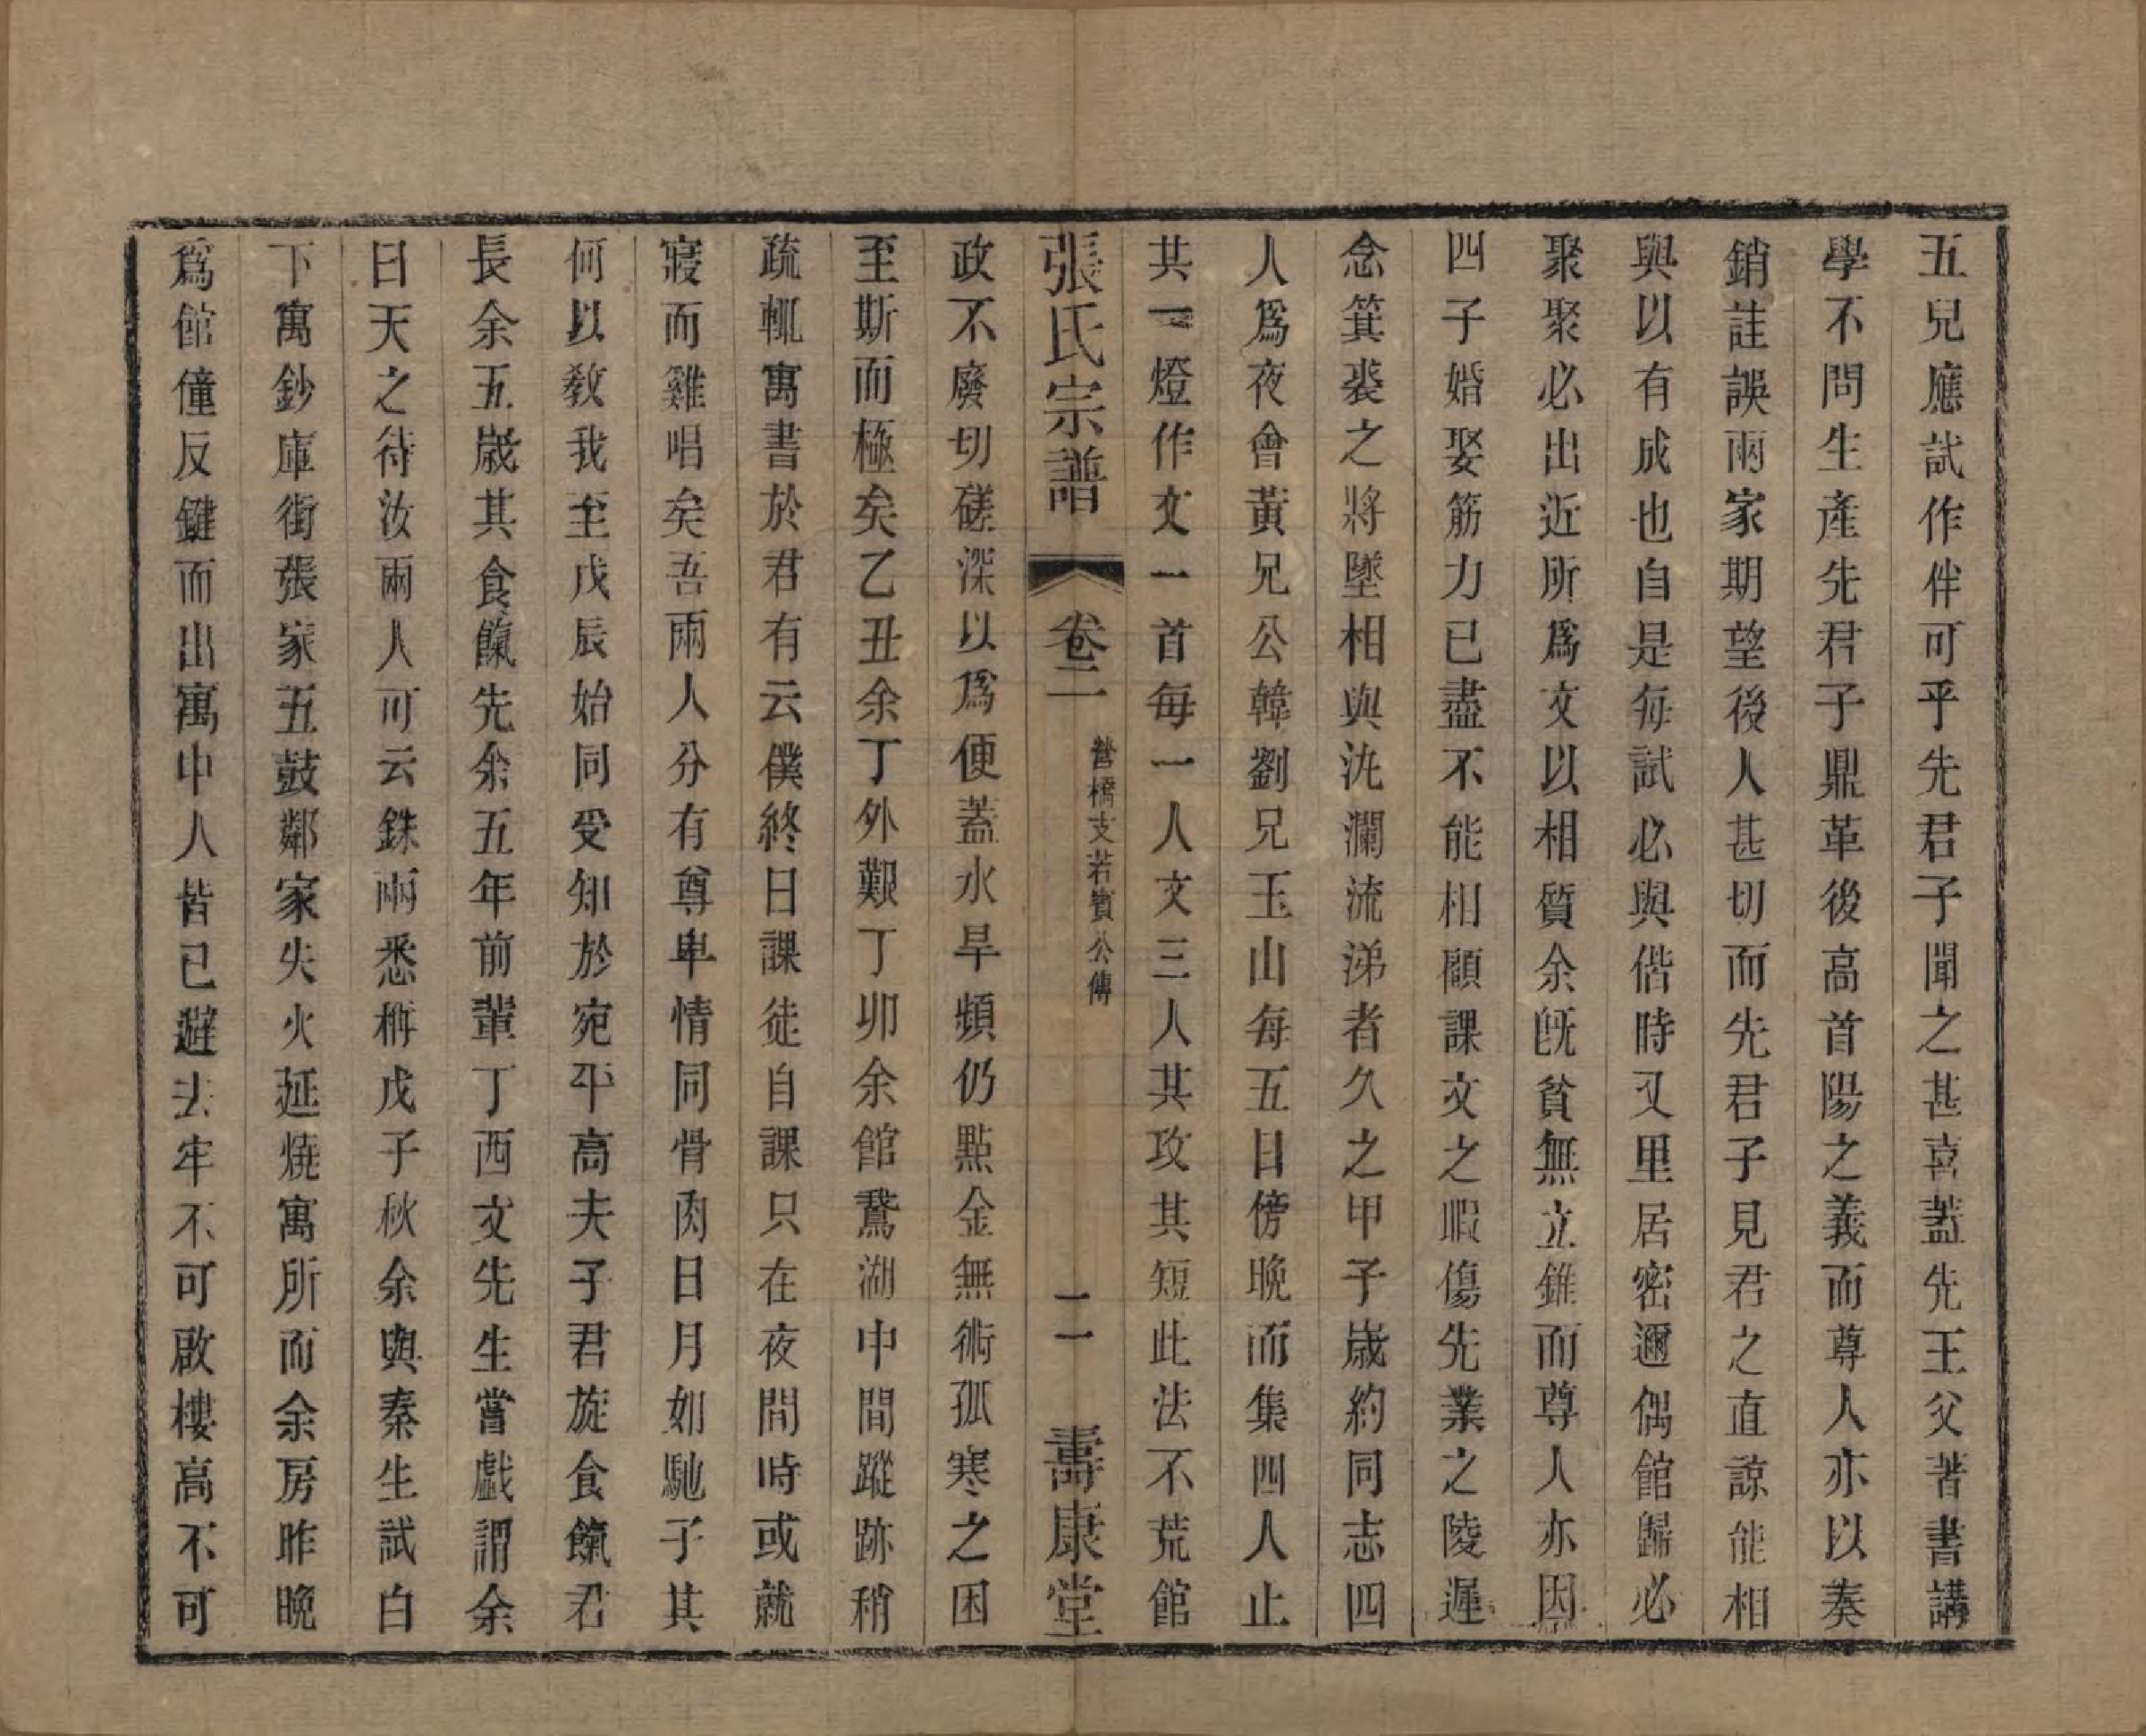 五兒應試作伴可乎先君子聞之甚喜蓋先王父著書講
學不問生產先君子鼎革後高首陽之義而尊人亦以奏
銷詿誤兩家期望後人甚切而先君子見君之直諒能相
與以有成也自是每試必與偕時又里居密邇偶館歸必
聚聚必出近所爲文以相質余旣貧無立錐而尊人亦因
四子婚娶筋力已盡不能相顧課文之暇傷先業之陵遲
念箕裘之將墜相與汍瀾流涕者久之甲子歲約同志四
人爲夜會黃兄公韓劉兄玉山每五日傍晚而集四人止
共一燈作文一首每一人文三人其攻其短此法不荒館
張氏宗譜
卷二
營橋支若賓公傳
二
壽康堂
政不廢切磋深以爲便蓋水旱頻仍點金無術孤寒之困
至斯而極矣乙丑余丁外艱丁卯余館鵞湖中間蹤跡稍
疏輒寓書於君有云僕終日課徒自課只在夜間時或就
寢而雞唱矣吾兩人分有尊卑情同骨肉日月如馳子其
何以敎我至戊辰始同受知於宛平高夫子君旋食餼君
長余五歲其食餼先余五年前輩丁酉文先生嘗戲謂余
曰天之待汝兩人可云銖兩悉稱戊子秋余與秦生試白
下寓鈔庫街張家五鼓鄰家失火延燒寓所而余房昨晚
爲館僮反鍵而出寓中人皆已避去牢不可啟樓高不可